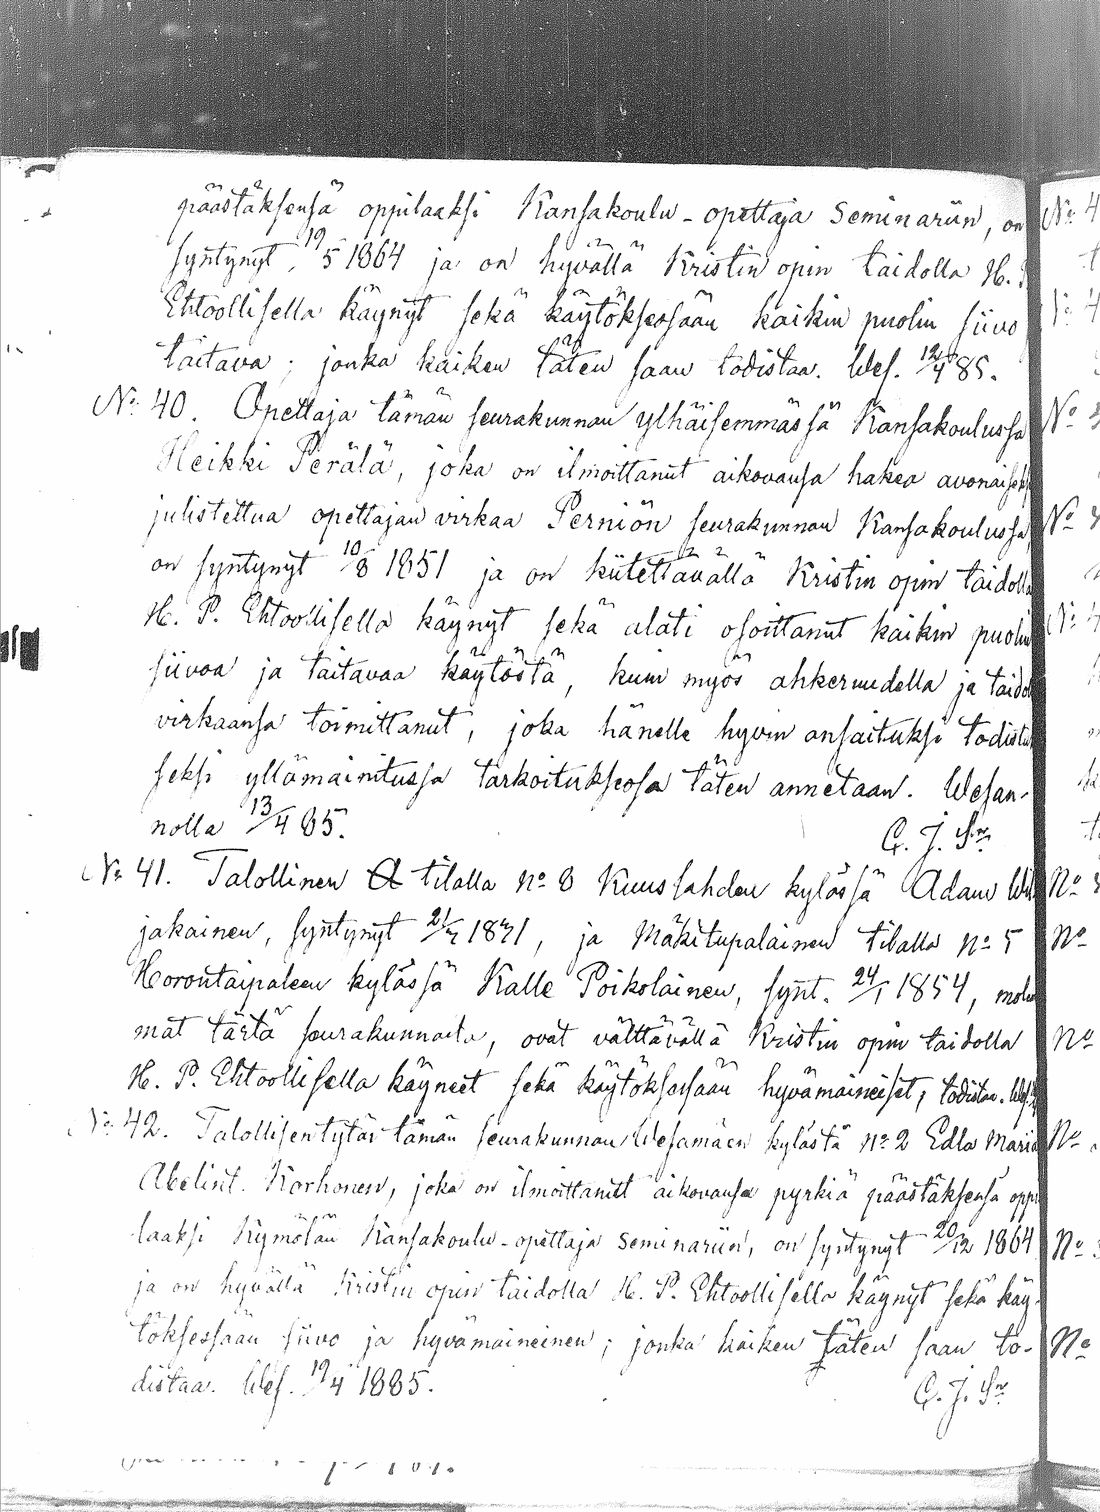 päästäksensä oppilaaksi Kansakoulu-opettaja Seminariin, on
syntynyt 19/5 1864 ja on hyvällä Kristin opin taidolla H.
Ehtoollisella käynyt sekä käytöksessään kaikin puolin siivo
taitava; jonka kaiken täten saan todistaa. Wes. 12/4 85.
No 40. Opettaja tämän seurakunnan ylhäisemmässä Kansakoulussa
Heikki Perälä, joka on ilmoittanut aikovansa hakea avonaiseksi
julistettua opettajan virkaa Perniön seurakunnan Kansakoulussa,
on syntynyt 10/8 1851 ja on kiitettävällä Kristin opin taidolla
H. P. Ehtoollisella käynyt sekä alati osoittanut kaikin puolin
siivoa ja taitavaa käytöstä, kuin myös ahkeruudella ja taidol
virkaansa toimittanut, joka hänelle hyvin ansaituksi todistu
seksi yllämainitussa tarkoituksessa täten annetaan. Wesan-
nolla 13/4 85.
C. J. Sn
No 41. Talollinen tilalla No 8 Kuuslahden kylässä Adam Wil
jakainen, syntynyt 21/7 1871, ja Mäkitupalainen tilalla No 5
Horontaipaleen kylässä Kalle Poikolainen, synt. 24/1 1854, molem
mat tästä seurakunnasta, ovat välttävällä Kristin opin taidolla
H. P. Ehtoollisella käyneet sekä käytöksessään hyvämaineiset; todistaa. Wes.
No 42. Talollisentytär tämän seurakunnan Wesamäen kylästä No 2 Edla Maria
Abelint. Korhonen, joka on ilmoittanut aikovansa pyrkiä päästäksensä oppi
laaksi Kymölän Kansakoulu-opettaja Seminariin, on syntynyt 20/12 1864
ja on hyvällä Kristin opin taidolla H. P. Ehtoollisella käynyt sekä käy-
töksessään siivo ja hyvämaineinen; jonka kaiken täten saan to-
distaa. Wes. 19/4 1885.
C. J. Sn